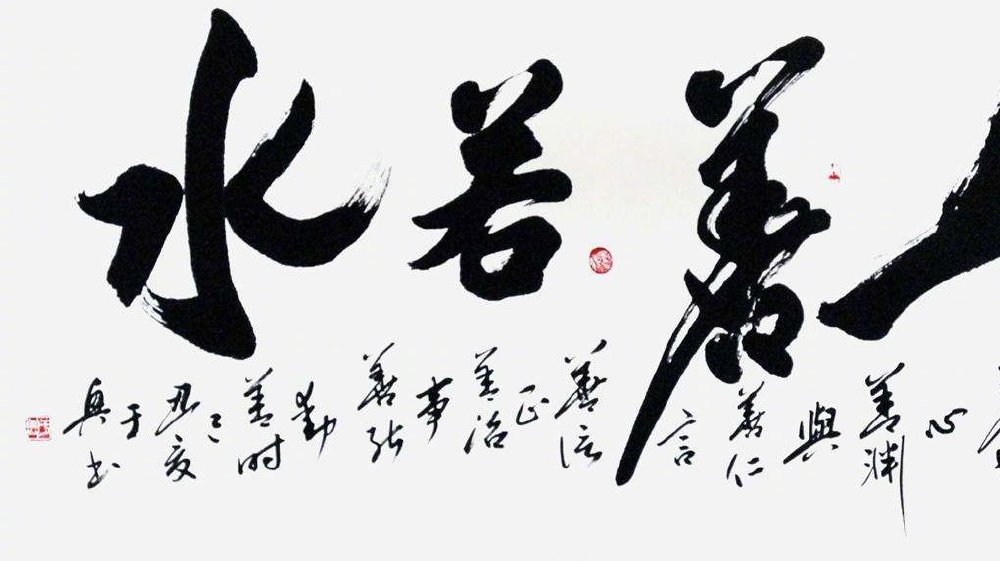 上善若水
心善渊與善仁言善信正善治事善能動善时
己丑夏于
书